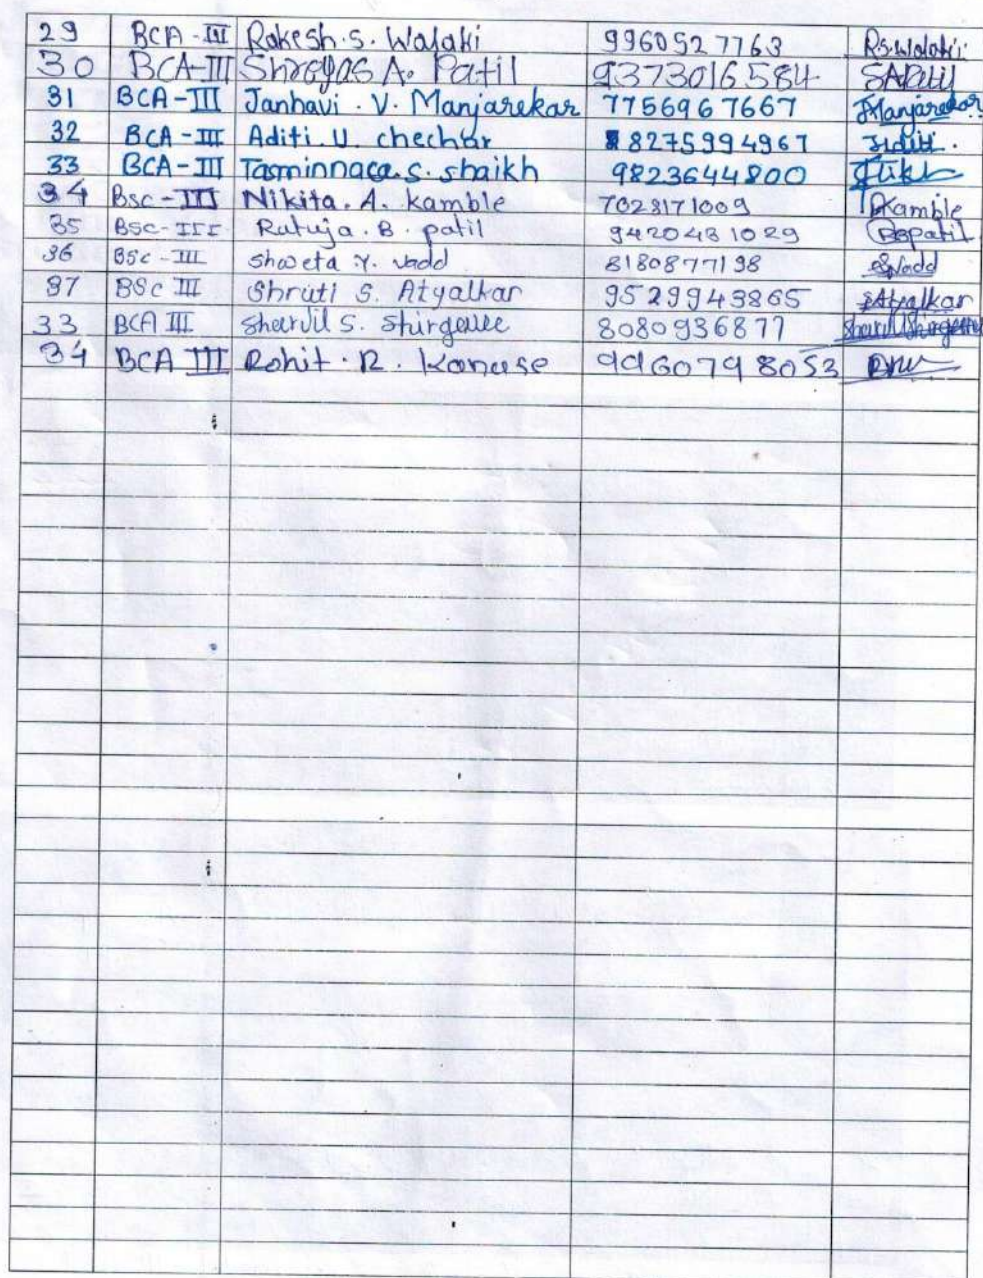 29 BCA-III Rakesh.S. Walaki 9960527763 R.S.Walaki
30 BCA-III Shreyas A. Patil 9373016584 SAPatil
31 BCA-III Janhavi . V. Manjarekar 7756967667 Manjarekar
32 BCA-III Aditi. U. chechar 8275994967 Aditi.
33 BCA-III Tasminnaaz.S. shaikh 9823644800
34 BSC-III Nikita. A. kamble 7028171009 Kamble
35 BSC-III Rutuja. B. patil 9420481029 RBPatil
36 BSC-III shweta .Y. vadd 8180877198 SVadd
37 BSC III Shruti S. Atyalkar 9529949865 SAtyalkar
33 BCA III Sharvil S. Shirgave 8080936877
34 BCA III Rohit . R. Kanase 9960798053